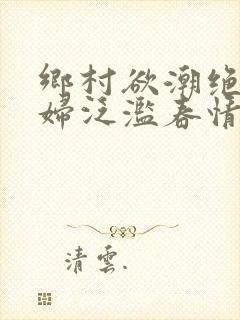 鄉村欲潮绝
婦泛濫春情
清雲.